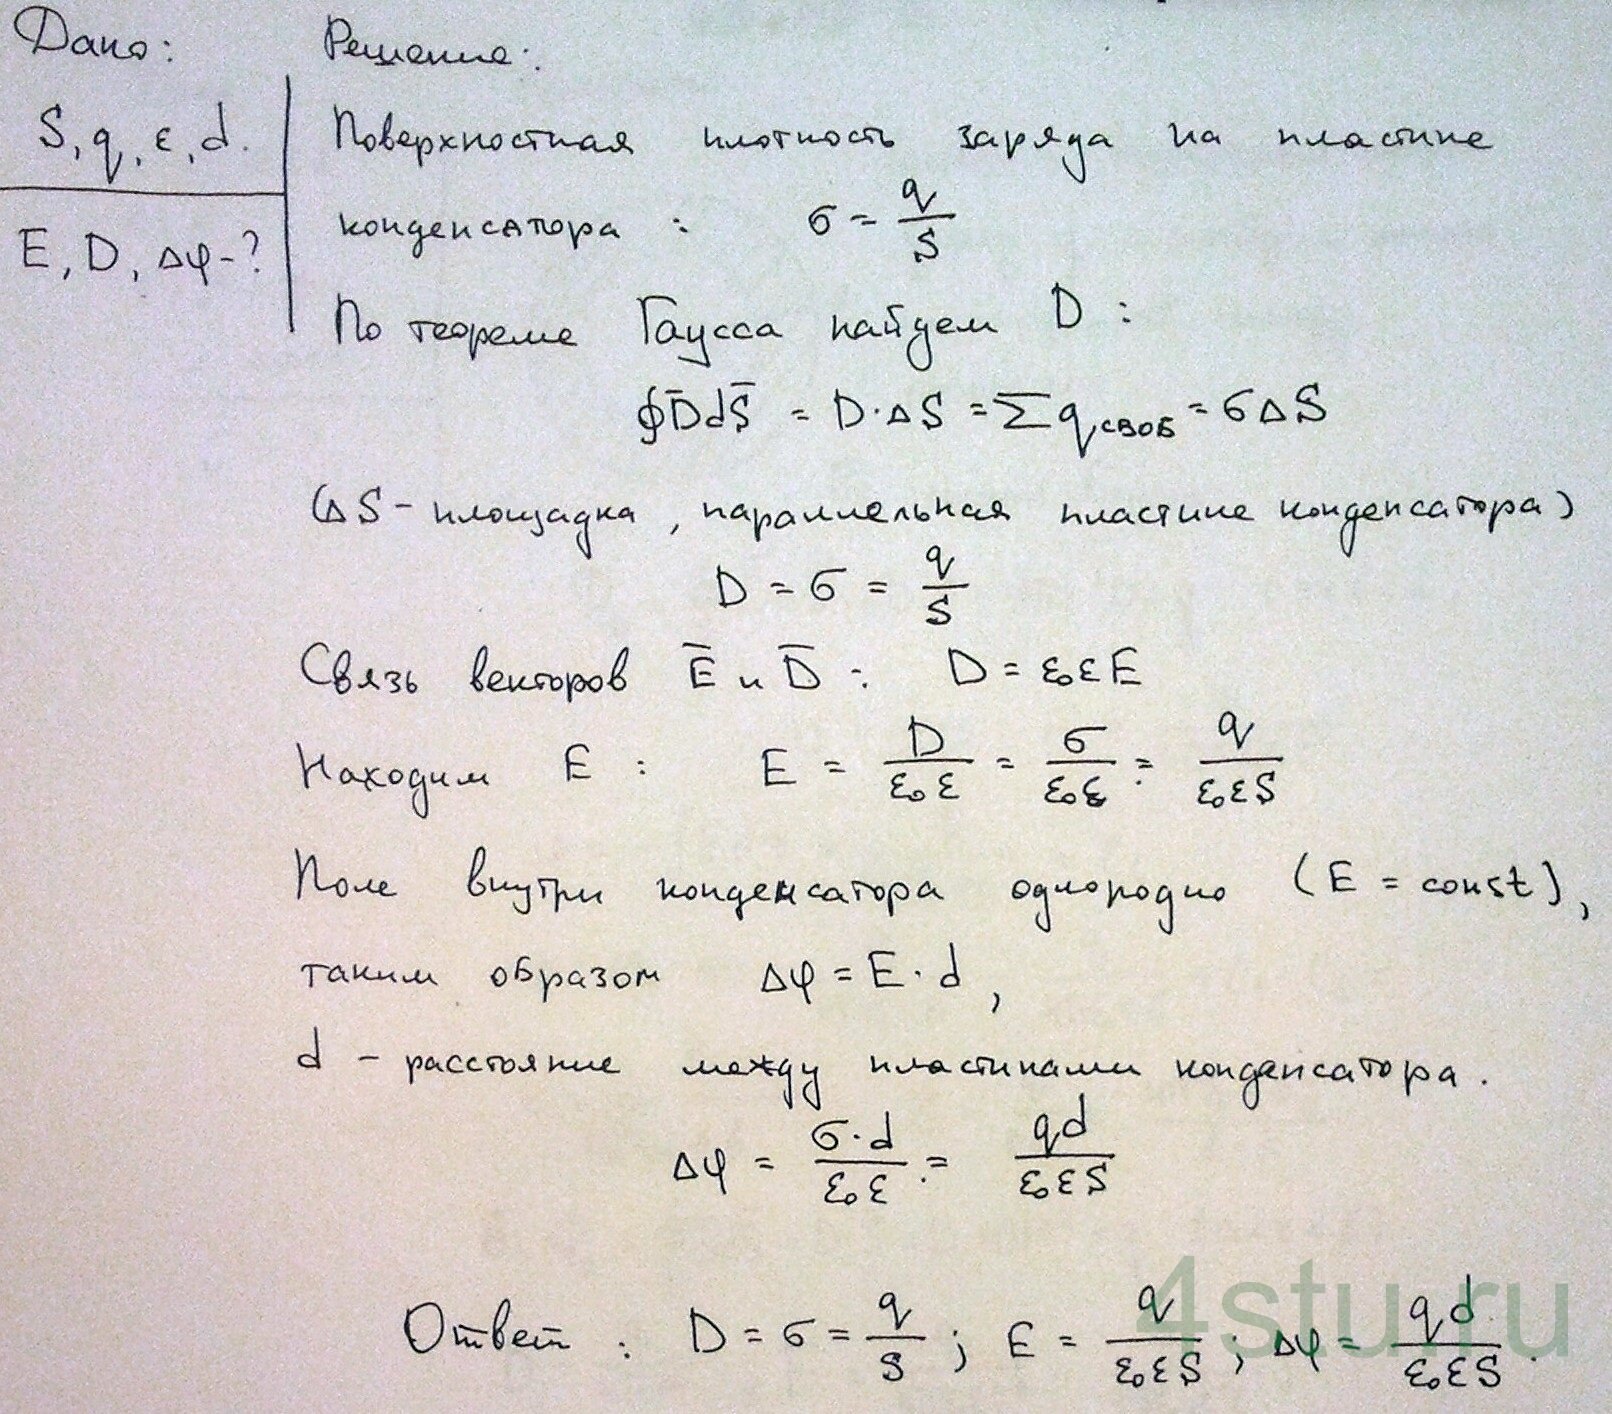 Дано:
S, q, ε, d.
E, D, Δφ-?
Решение:
Поверхностная плотность заряда на пластине
конденсатора : σ = q/S
По теореме Гаусса найдем D :
∮D̄dS̄ = D·ΔS = Σq своб = σΔS
(ΔS - площадка, параллельная пластине конденсатора)
D = σ = q/S
Связь векторов Ē и D̄ : D = ε₀εE
Находим E : E = D/ε₀ε = σ/ε₀ε = q/ε₀εS
Поле внутри конденсатора однородно (E = const),
таким образом Δφ = E·d,
d - расстояние между пластинами конденсатора.
Δφ = σ·d/ε₀ε = qd/ε₀εS
Ответ : D = σ = q/S ; E = q/ε₀εS ; Δφ = qd/ε₀εS .
4stu.ru